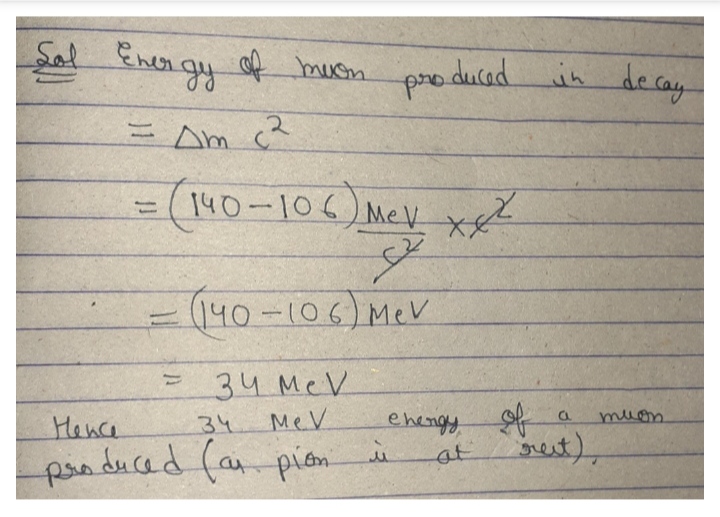 Sol Energy of muon produced in decay
= Δm c²
= (140-106) MeV/c² × c²
= (140-106) MeV
= 34 MeV
Hence 34 MeV energy of a muon
produced (as pion is at rest).